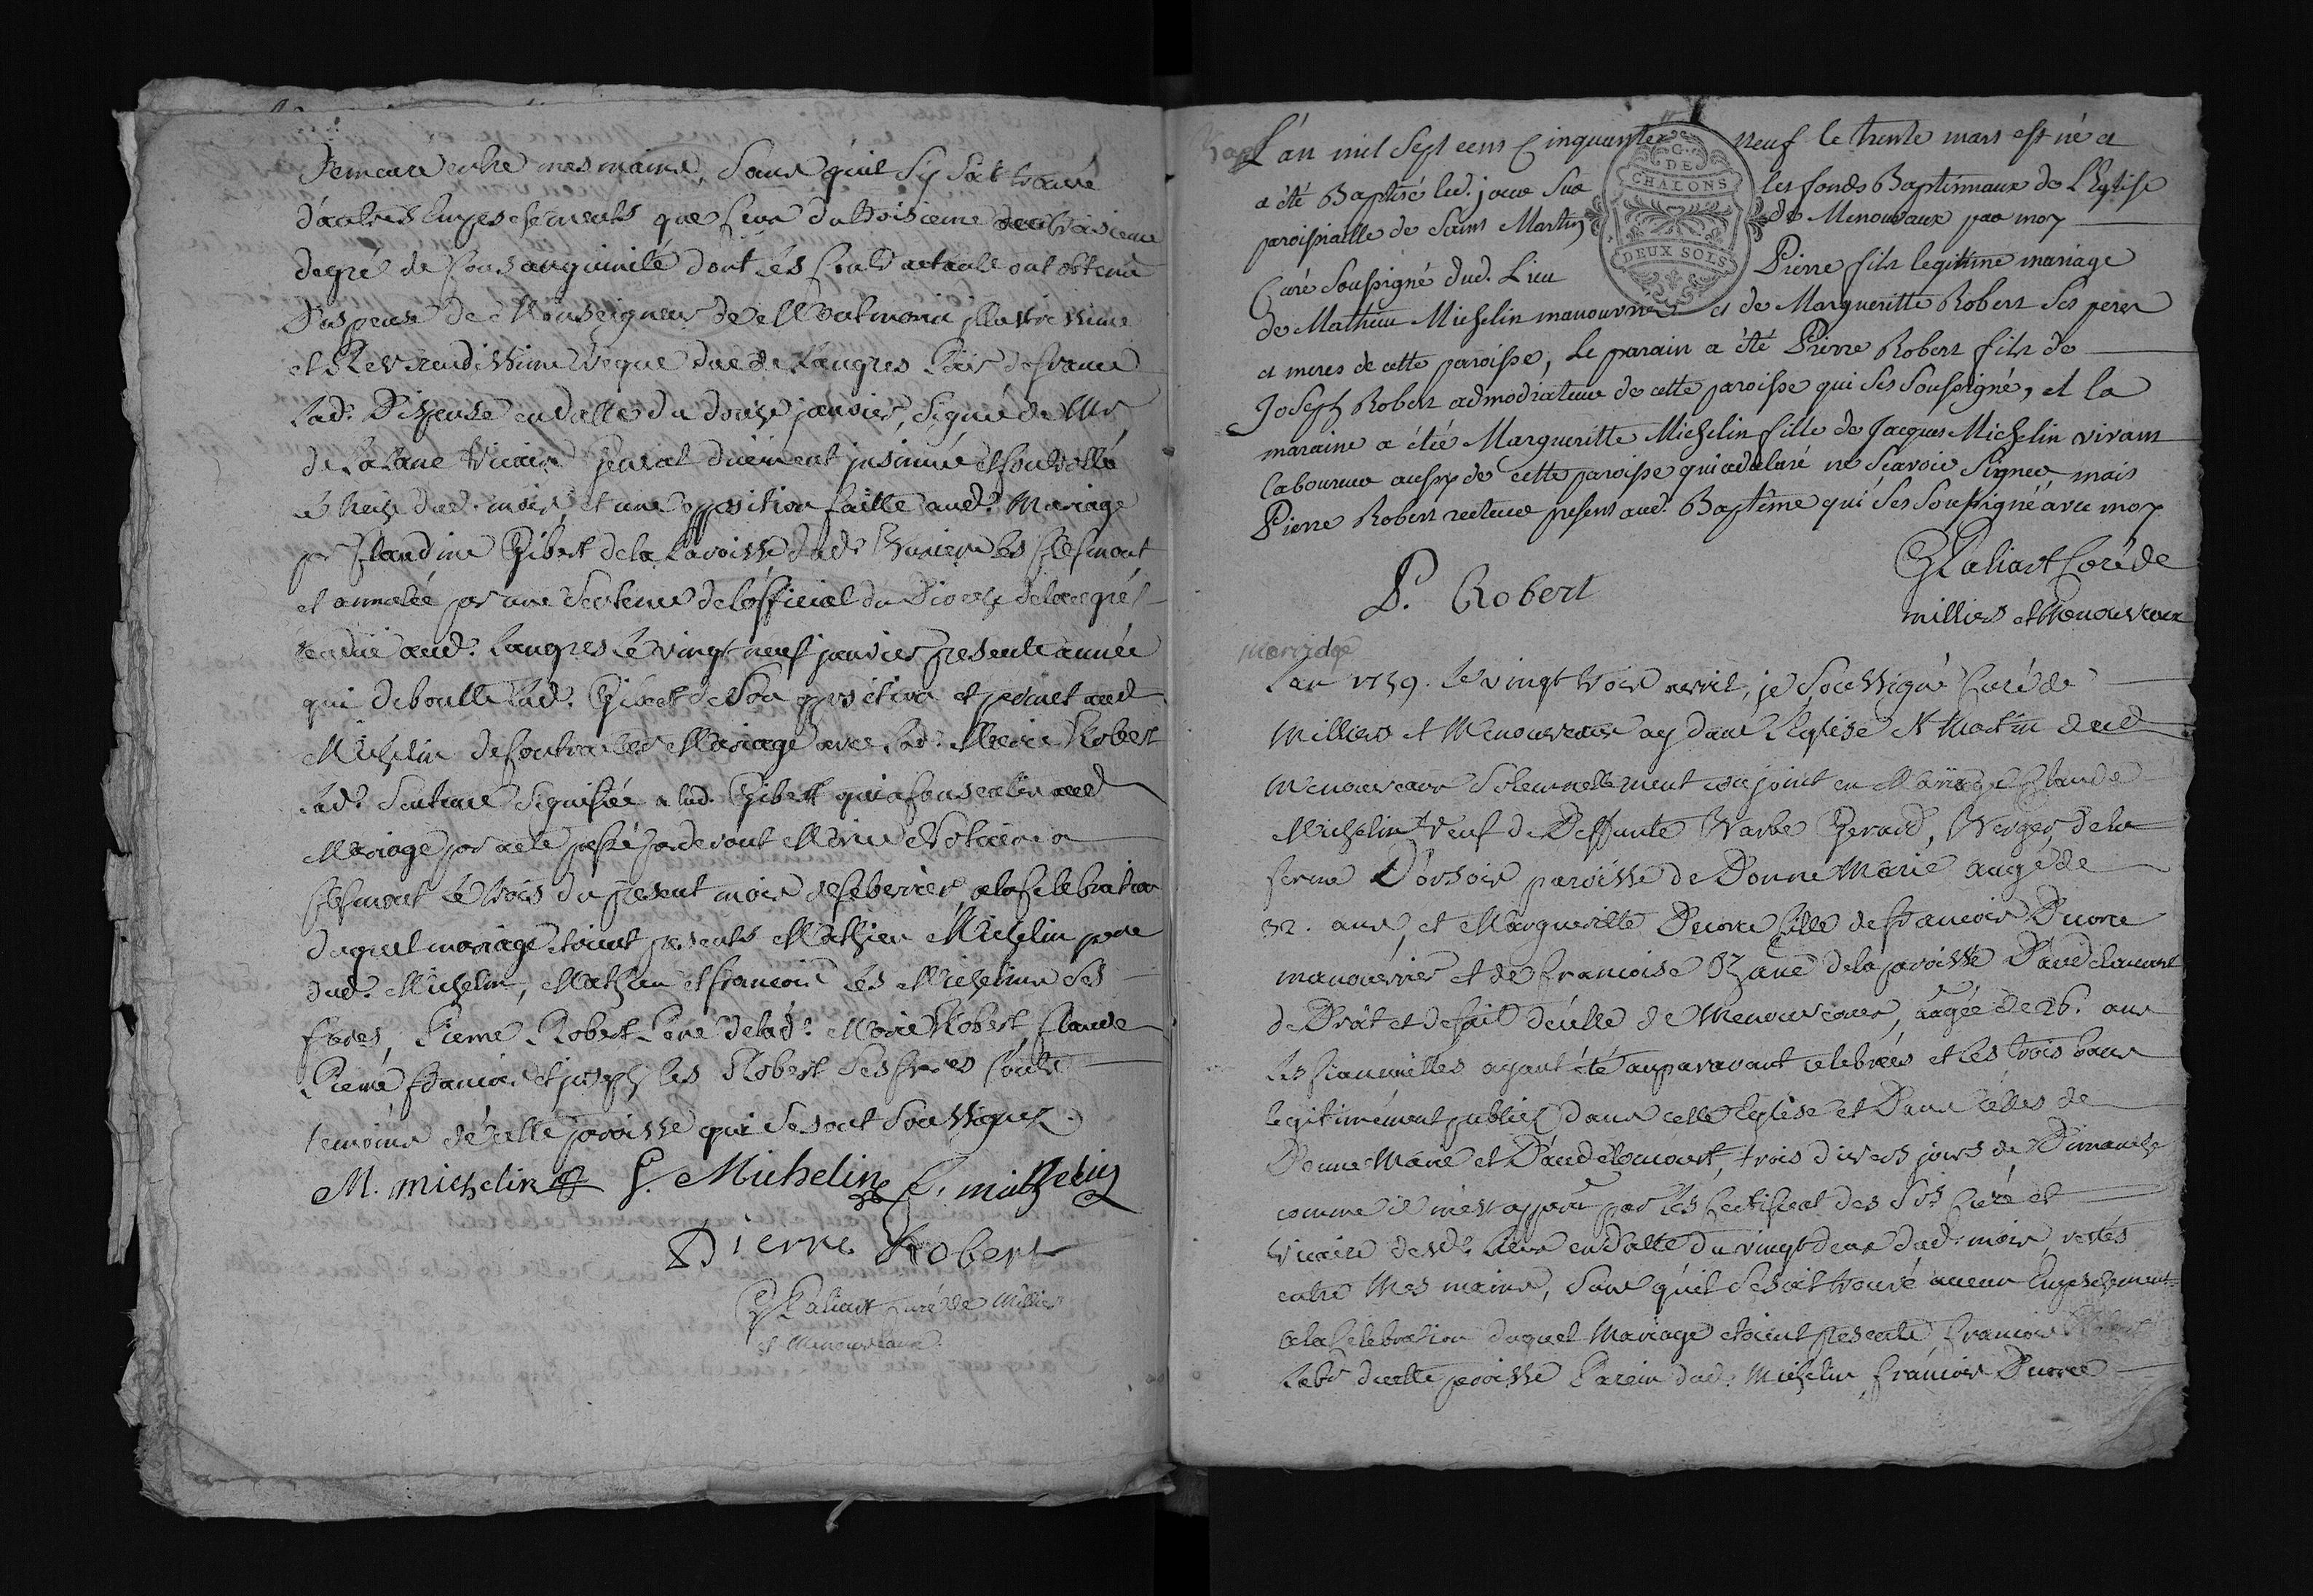 demeure entre mes mains, sans qu'il sy soit trouvé
d'autres Empeschements que ceux du troisieme au troisieme
degré de Consanguinité dont les Contractants ont obtenu
Dispense de Monseigneur de Montmorin illustrissime
et Reverendissime Eveque duc de Langres Pair de france
lad. Dispense en datte du douze janvier, signée de Mr
vicaire general düement insinuée et controllée
le treize dud. mois, et une opposition faitte aud. Mariage
pr Claudine Gibert de la Paroisse dud. Clefmont
et annulée par une Sentence de l'official du Diocese de Langres
rendüe aud. Langres le vingt neuf janvier presente année
qui deboutte lad. Gibert de son opposition et permet aud
Michelin de Contracter Mariage avec lad. Marie Robert
lad. Sentence signifiée a lad. Gibert qui a consentie aud
Mariage par acte passé pardevant Notaire a
Clefmont le trois du present mois de febvrier, a la Celebration
duquel mariage etoient presents Mathieu Michelin pere
dud. Michelin, Mathieu et francois les Michelins ses
freres, Pierre Robert Pere de lad. Marie Robert, Claude
Pierre francois et joseph les Robert ses freres touts
temoins de cette paroisse qui se sont soussignez.
M. michelin P. Michelin F. michelin
Pierre Robert
Paliart Curé de Millier
et Menouveaux
Bapt
L'an mil sept cens Cinquante neuf le trente mars est né et
a été Baptisé led. jour sur les fonds Baptismaux de L'Eglise
paroissialle de Saint Martin de Menouvaux par moy
Curé soussigné dud. Lieu Pierre fils legitime mariage
de Mathieu Michelin manouvrier et de Margueritte Robert ses peres
et meres de cette paroisse, Le parain a été Pierre Robert fils de
Joseph Robert admodiateur de cette paroisse qui ses soussigné, et la
maraine a étée Margueritte Michelin fille de Jacques Michelin vivant
Laboureur aussy de cette paroisse qui a declaré ne scavoir signer mais
Pierre Robert recteur present aud. Baptême qui ses soussigné avec moy
G. DE CHALONS
DEUX SOLS
P. Robert
Paliart Curé de
milliers et Menouveaux
mariage
L'an 1759. le vingt trois avril, je soussigné Curé de
Milliers et Menouveaux ay dans l'Eglise St Martin dud
Menouveaux solemnellement conjoint en Mariage Claude
Michelin veuf de Deffunte Barbe Gerard, Berger de la
ferme D'orsoir paroisse de Donne Marie augé de
32. ans, et Margueritte Ducore fille de francois Ducore
manouvrier et de francoise Ozane de la paroisse Daudeloncourt
de Droit et de fait d'eelle de Menouveaux, aagée de 26. ans
les fiancailles ayant été auparavant celebrées et les trois bans
legitimement publiez dans cette Eglise et Dans celles de
Donne Marie et D'audeloncourt, trois divers jours de Dimanche
comme il m'est apparu par les Certificat des Srs Curé et
Vicaire desd. lieux en datte du vingt deux dud. mois restés
entre Mes mains, sans qu'il se soit trouvé aucun Empeschement
a la Celebration duquel Mariage etoient presents francois
Labr de cette paroisse Parein dud. Michelin, francois Ducore